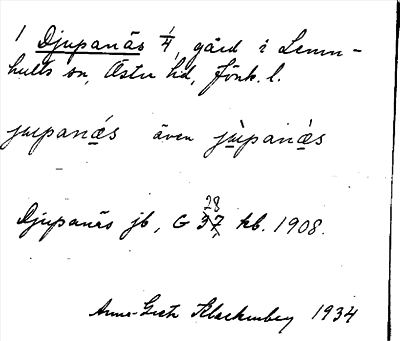 1 Djupanäs 1/4, gård i Lemn-
hults sn, Östra hd, Jönk. l.
jupanæ̀s även jùpanæ̀s
Djupanäs jb, G 28 37 kb. 1908.
Anna-Greta Klackenberg 1934